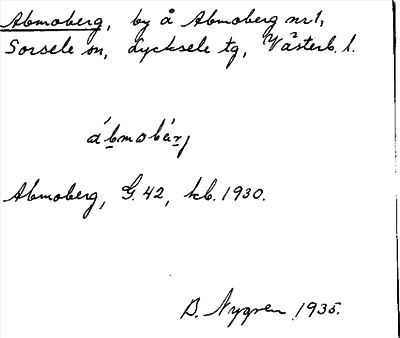 Abmoberg, by å Abmoberg nr 1,
Sorsele sn, Lycksele tg, Västerb. l.
ábmobærj
Abmoberg, G. 42, kb. 1930.
B. Nygren 1935.